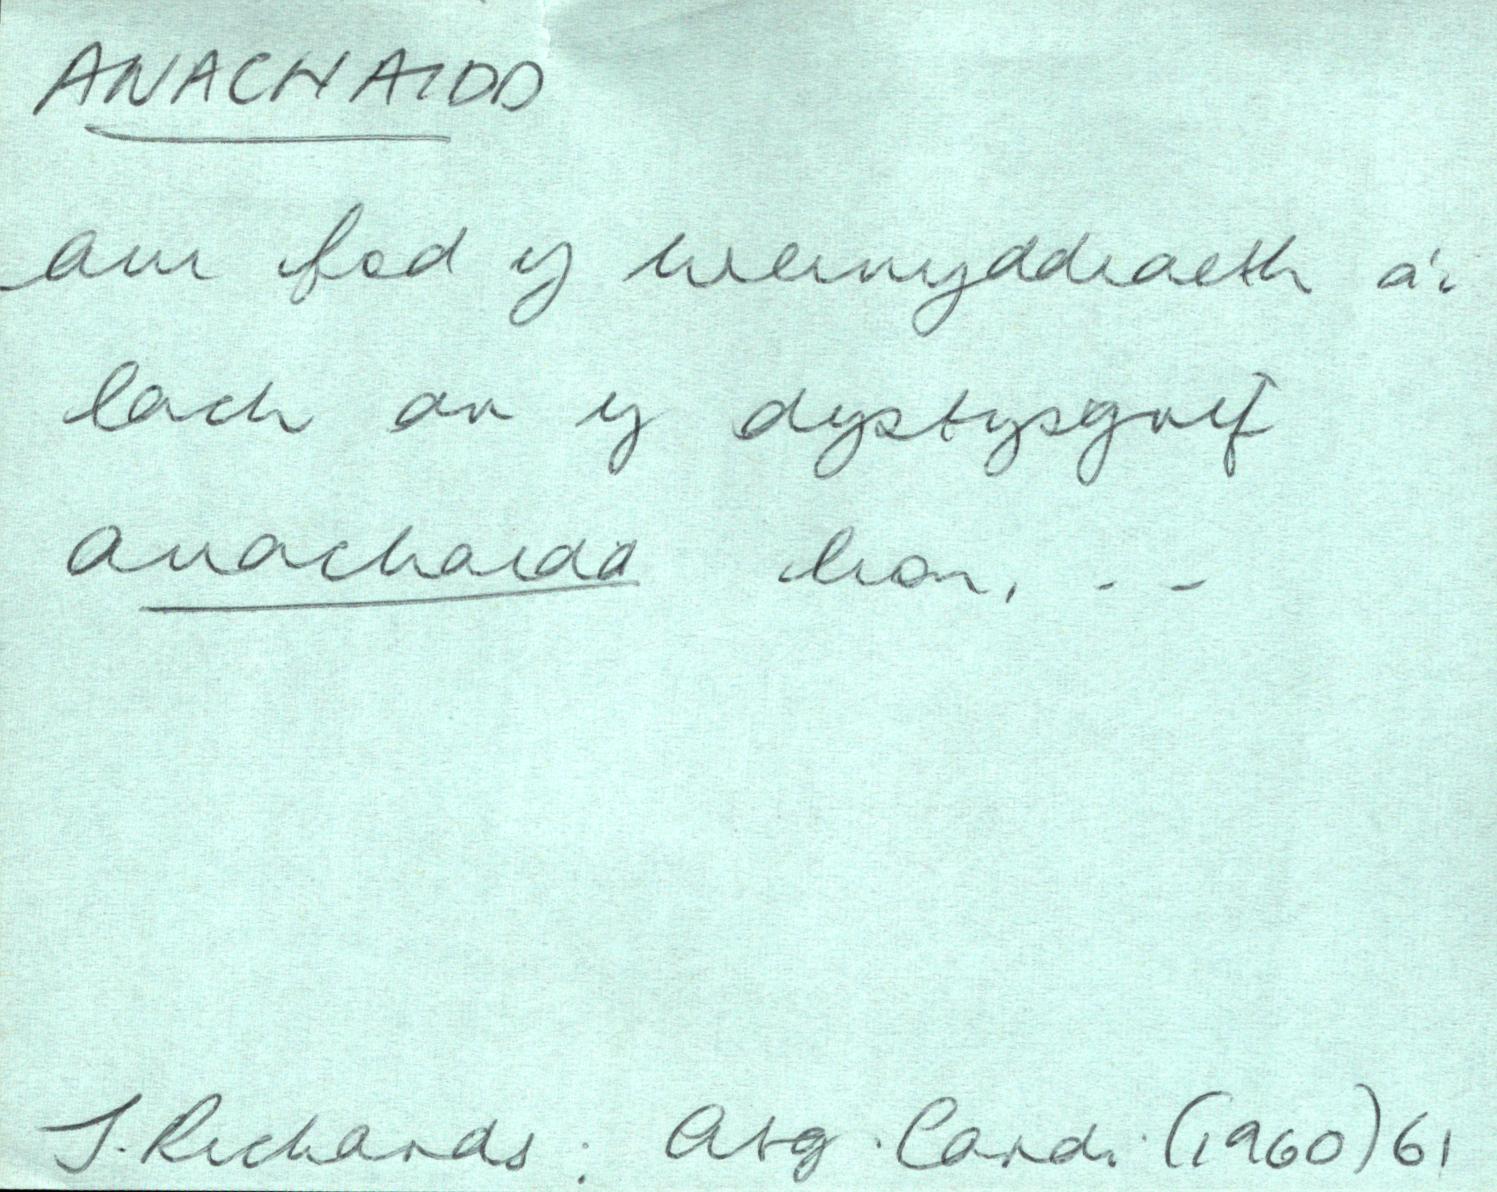 ANACHAIDD
am fod y weinyddiaeth a'i
lach ar y dystysgrif
anachaidd hon, . . -
T. Richards: Atg. Cardi (1960) 61